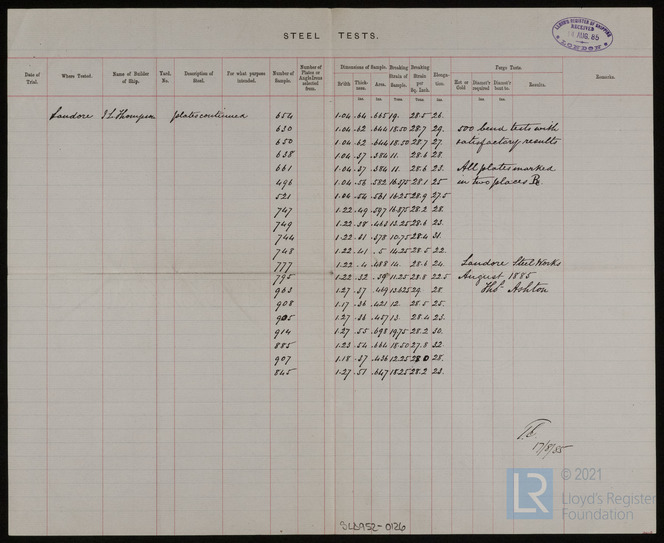 STEEL TESTS.
LLOYD'S REGISTER OF SHIPPING
RECEIVED
AUG. 85
LONDON
Date of Trial. Where Tested. Name of Builder of Ship. Yard. No. Description of Steel. For what purpose intended. Number of Sample. Number of Plates or Angle Irons selected from. Dimensions of Sample. Breaking Strain of Sample. Breaking Strain per Sq. Inch. Elongation. Forge Tests. Remarks.
Br'dth Thickness. Area. Hot or Cold Results.
Ins. Ins. Ins. Tons. Tons. Ins. Ins. Ins.
Landore J L Thompson plates continued 654 1·04 ·64 ·665 19. 28·5 26.
630 1·04 ·62 ·644 18·50 28·7 29. 500 bend tests with
650 1·04 ·62 ·644 18·50 28·7 27. satisfactory results
638 1·04 ·37 ·384 11. 28·6 28.
661 1·04 ·37 ·384 11. 28·6 23. All plates marked
496 1·04 ·56 ·582 16·375 28·1 25 in two places
521 1·04 ·54 ·561 16·25 28·9 27·5
747 1·22 ·49 ·597 16·875 28·2 28.
749 1·22 ·38 ·463 13·25 28·6 23.
744 1·22 ·31 ·378 10·75 28·4 31.
748 1·22 ·41 ·5 14·25 28·5 22.
777 1·22 ·4 ·488 14. 28·6 24. Landore Steel Works
795 1·22 ·32 ·39 11·25 28·8 22·5 August 1885
963 1·27 ·37 ·469 13·625 29. 28. Thos. Ashton
908 1·17 ·36 ·421 12. 28·5 25.
905 1·27 ·36 ·457 13. 28·4 23.
914 1·27 ·55 ·698 19·75 28·2 30.
885 1·23 ·54 ·664 18·50 27·8 32.
907 1·18 ·37 ·436 12·25 28·0 28.
845 1·27 ·51 ·647 18·25 28·2 23.
17/8/85
LR
© 2021
Lloyd's Register
Foundation
SLD952-0126